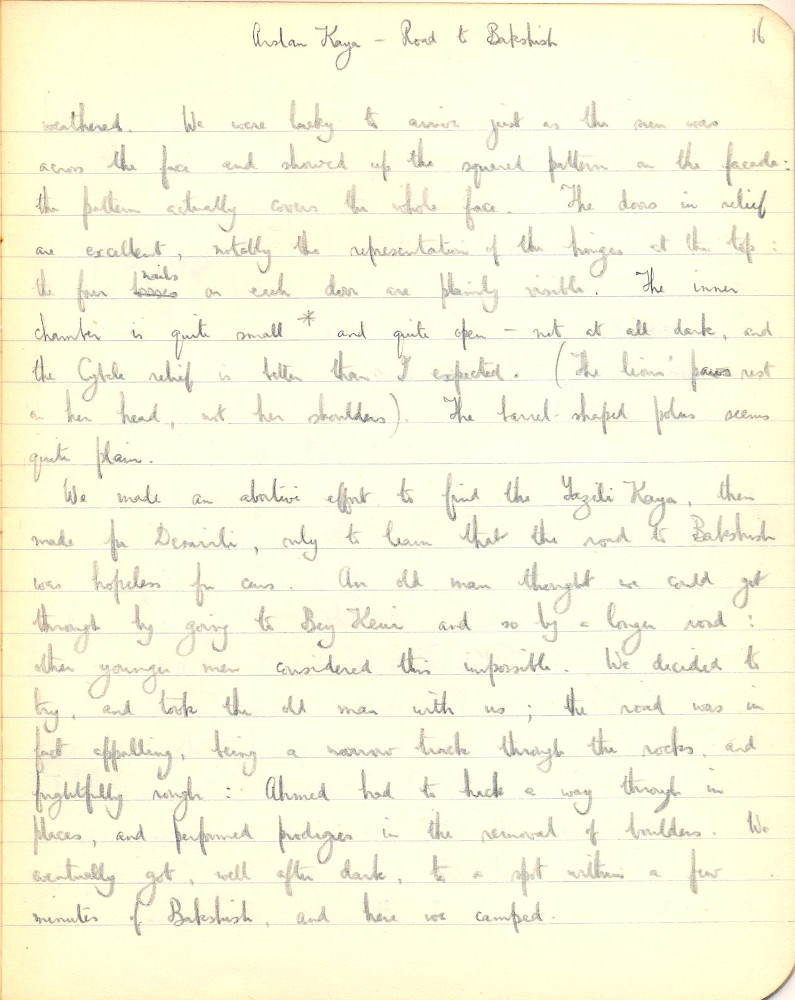 Arslan Kaya – Road to Bakshish 16
weathered. We were lucky to arrive just as the sun was
across the face and showed up the squared pattern on the facade:
the pattern actually covers the whole face. The doors in relief
are excellent, notably the representation of the hinges at the top:
the four bosses nails on each door are plainly visible. The inner
chamber is quite small * and quite open – not at all dark, and
the Cybele relief is better than I expected. (The lions' paws rest
on her head, not her shoulders). The barrel-shaped polos seems
quite plain.
We made an abortive effort to find the Yazili Kaya, then
made for Demirli, only to learn that the road to Bakshish
was hopeless for cars. An old man thought we could get
through by going to Bey Keui and so by a longer road:
other younger men considered this impossible. We decided to
try, and took the old man with us; the road was in
fact appalling, being a narrow track through the rocks, and
frightfully rough: Ahmed had to hack a way through in
places, and performed prodigies in the removal of boulders. We
eventually got, well after dark, to a spot within a few
minutes of Bakshish, and here we camped.